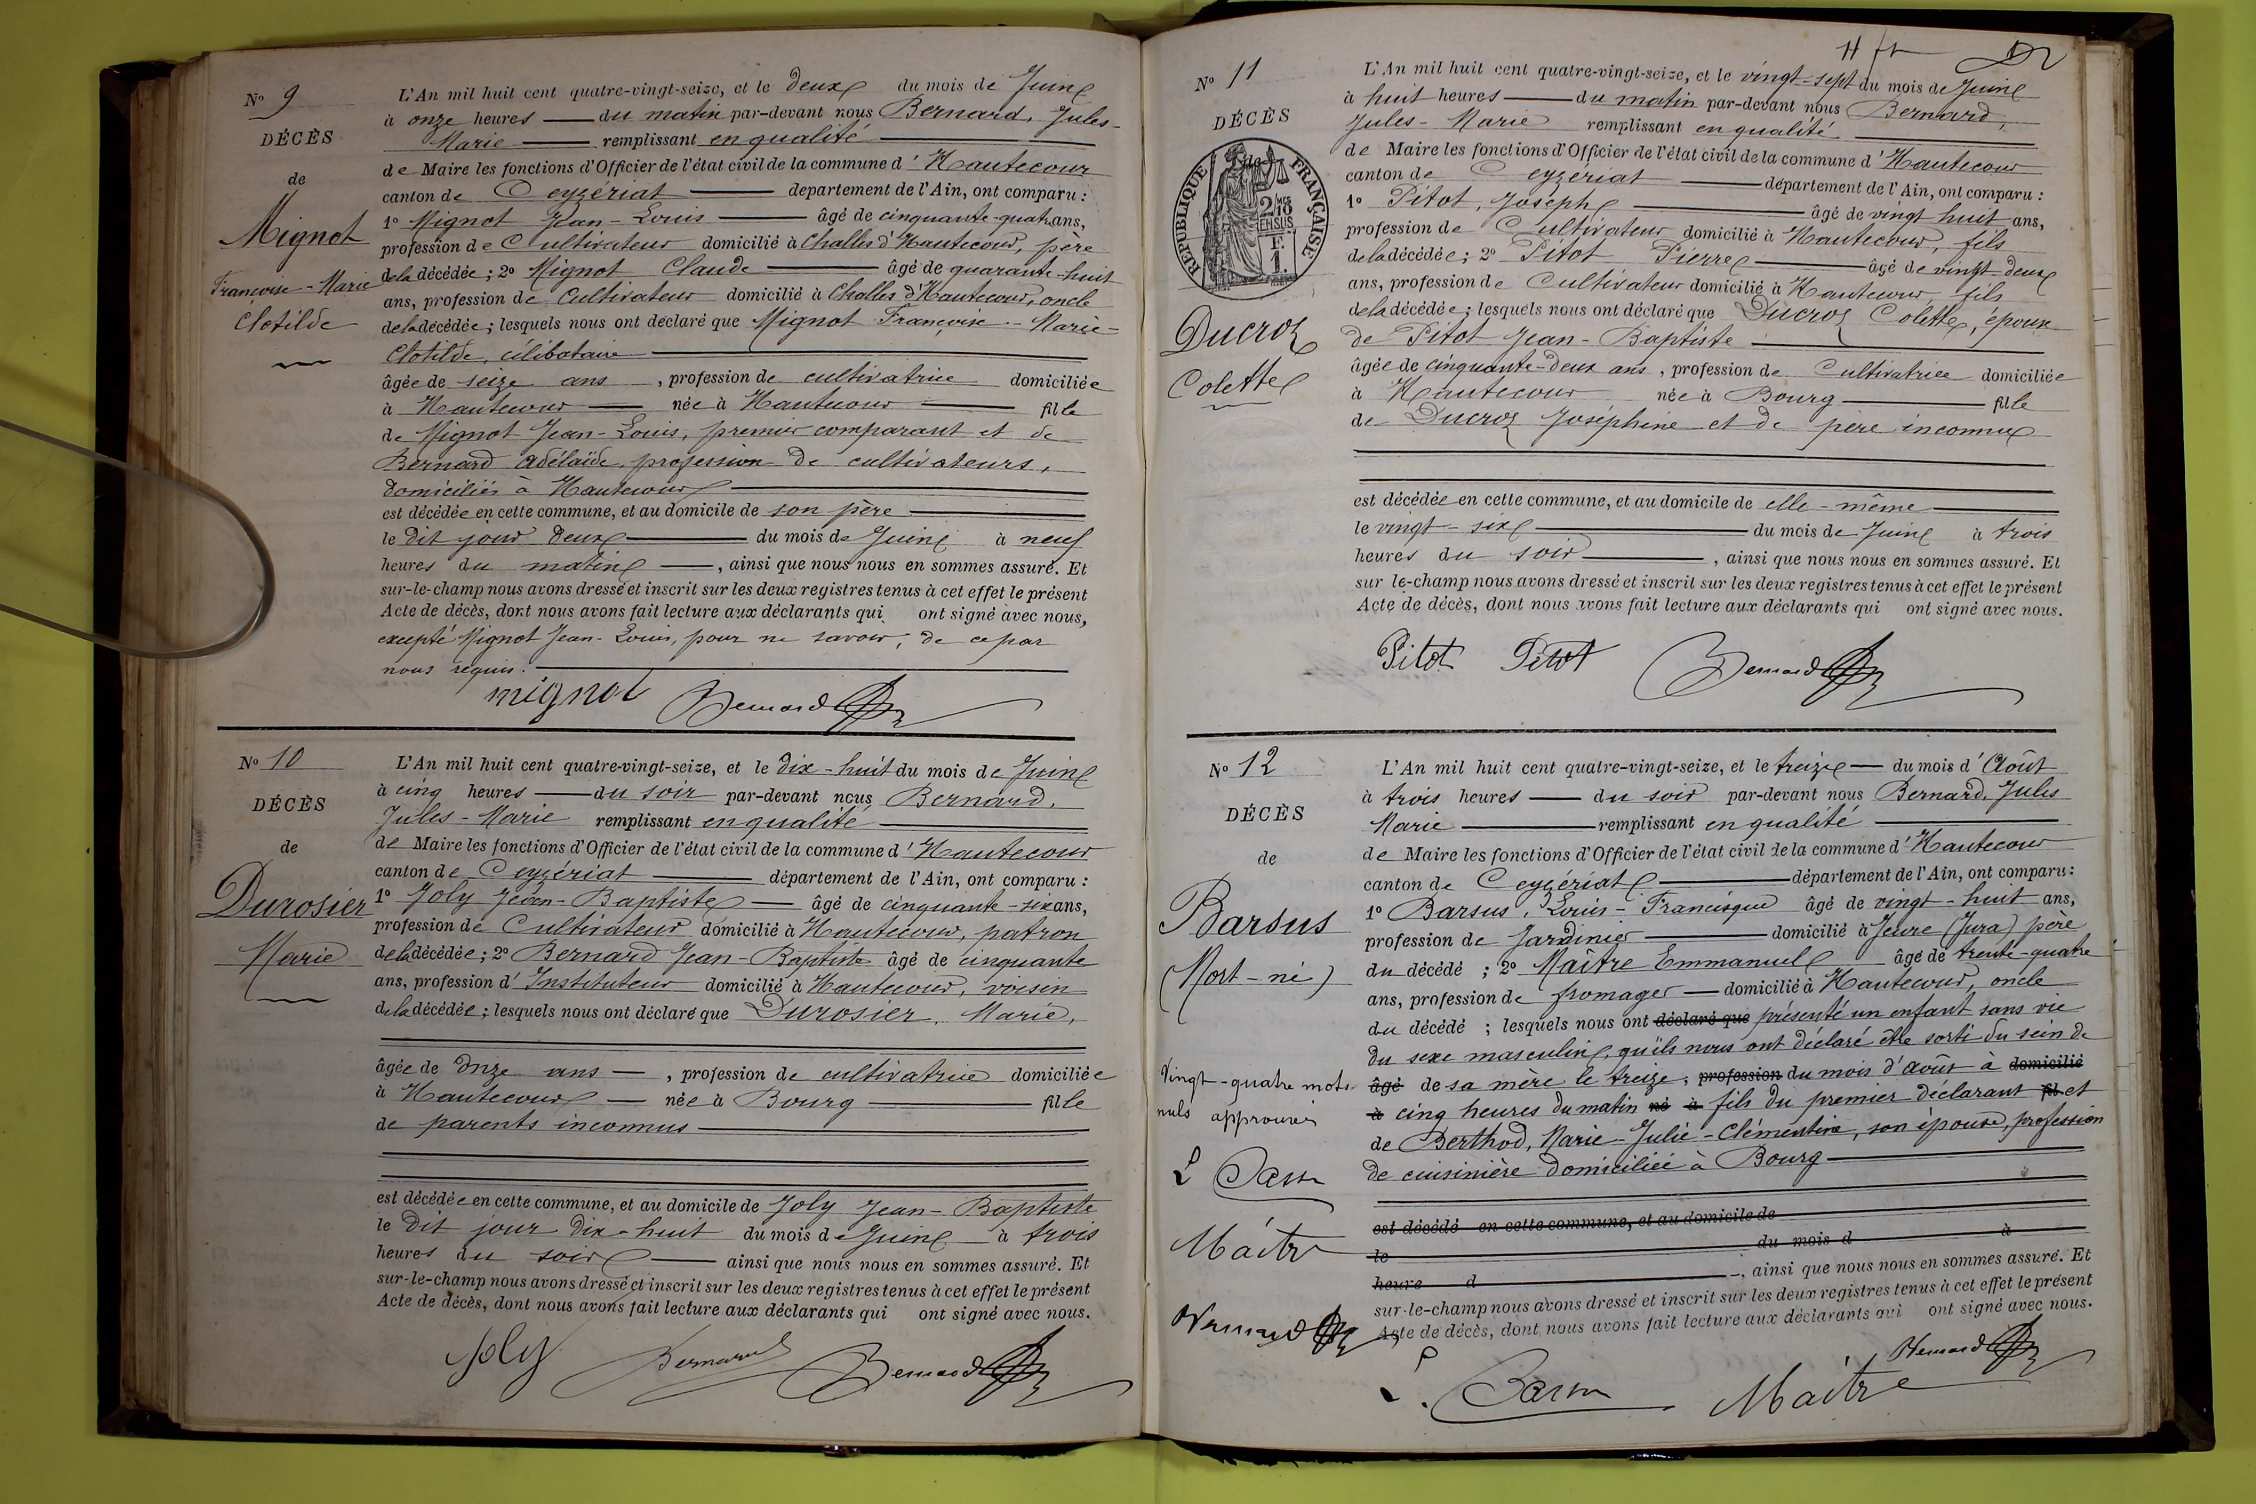 N° 9
DÉCÈS
de
Mignot
Françoise-Marie
Clotilde
L'An mil huit cent quatre-vingt-seize, et le deux du mois de Juin
à onze heures du matin par-devant nous Bernard, Jules-
Marie remplissant en qualité
de Maire les fonctions d'Officier de l'état civil de la commune d'Hautecour
canton de Ceyzériat département de l'Ain, ont comparu :
1° Mignot Jean-Louis âgé de cinquante-quatre ans,
profession de Cultivateur domicilié à Challes d'Hautecour, père
de la décédée ; 2° Mignot Claude âgé de quarante-huit
ans, profession de Cultivateur domicilié à Challes d'Hautecour, oncle
de la décédée ; lesquels nous ont déclaré que Mignot Françoise-Marie-
Clotilde, célibataire
âgée de seize ans, profession de cultivatrice domiciliée
à Hautecour née à Hautecour fille
de Mignot Jean-Louis, premier comparant et de
Bernard Adélaïde, profession de cultivateurs,
domiciliés à Hautecour
est décédée en cette commune, et au domicile de son père
le dit jour deux du mois de Juin à neuf
heures du matin, ainsi que nous nous en sommes assuré. Et
sur-le-champ nous avons dressé et inscrit sur les deux registres tenus à cet effet le présent
Acte de décès, dont nous avons fait lecture aux déclarants qui ont signé avec nous,
excepté Mignot Jean-Louis, pour ne savoir, de ce par
nous requis.
mignot Bernard
N° 10
DÉCÈS
de
Durosier
Marie
L'An mil huit cent quatre-vingt-seize, et le dix-huit du mois de Juin
à cinq heures du soir par-devant nous Bernard,
Jules-Marie remplissant en qualité
de Maire les fonctions d'Officier de l'état civil de la commune d'Hautecour
canton de Ceyzériat département de l'Ain, ont comparu :
1° Joly Jean-Baptiste âgé de cinquante-six ans,
profession de Cultivateur domicilié à Hautecour, patron
de la décédée ; 2° Bernard Jean-Baptiste âgé de cinquante
ans, profession d'Instituteur domicilié à Hautecour, voisin
de la décédée ; lesquels nous ont déclaré que Durosier, Marie,
âgée de onze ans, profession de cultivatrice domiciliée
à Hautecour née à Bourg fille
de parents inconnus
est décédée en cette commune, et au domicile de Joly Jean-Baptiste
le dit jour dix-huit du mois de Juin à trois
heures du soir ainsi que nous nous en sommes assuré. Et
sur-le-champ nous avons dressé et inscrit sur les deux registres tenus à cet effet le présent
Acte de décès, dont nous avons fait lecture aux déclarants qui ont signé avec nous.
Joly Bernard Bernard
11
N° 11
DÉCÈS
de
RÉPUBLIQUE FRANÇAISE
2/10 EN SUS
1 F.
Ducroz
Colette
L'An mil huit cent quatre-vingt-seize, et le vingt-sept du mois de Juin
à huit heures du matin par-devant nous Bernard,
Jules-Marie remplissant en qualité
de Maire les fonctions d'Officier de l'état civil de la commune d'Hautecour
canton de Ceyzériat département de l'Ain, ont comparu :
1° Pitot, Joseph âgé de vingt huit ans,
profession de Cultivateur domicilié à Hautecour, fils
de la décédée ; 2° Pitot Pierre âgé de vingt-deux
ans, profession de Cultivateur domicilié à Hautecour, fils
de la décédée ; lesquels nous ont déclaré que Ducroz Colette, époux
de Pitot Jean-Baptiste
âgée de cinquante-deux ans, profession de Cultivatrice domiciliée
à Hautecour née à Bourg fille
de Ducroz Joséphine et de père inconnu
est décédée en cette commune, et au domicile de elle-même
le vingt-six du mois de Juin à trois
heures du soir, ainsi que nous nous en sommes assuré. Et
sur le-champ nous avons dressé et inscrit sur les deux registres tenus à cet effet le présent
Acte de décès, dont nous avons fait lecture aux déclarants qui ont signé avec nous.
Pitot Pitot Bernard
N° 12
DÉCÈS
de
Barsus
(Mort-né)
Vingt-quatre mots
nuls approuvés
Maître
Bernard
L'An mil huit cent quatre-vingt-seize, et le treize du mois d'Août
à trois heures du soir par-devant nous Bernard, Jules
Marie remplissant en qualité
de Maire les fonctions d'Officier de l'état civil de la commune d'Hautecour
canton de Ceyzériat département de l'Ain, ont comparu :
1° Barsus, Louis-Francisque âgé de vingt-huit ans,
profession de Jardinier domicilié à Jeure (Jura) père
du décédé ; 2° Maître Emmanuel âgé de trente-quatre
ans, profession de fromager domicilié à Hautecour, oncle
du décédé ; lesquels nous ont déclaré que présenté un enfant sans vie
du sexe masculin, qu'ils nous ont déclaré être sorti du sein de
âgé de sa mère le treize, profession du mois d'août à domicilié
à cinq heures du matin né à fils du premier déclarant fil et
de Berthod, Marie-Julie-Clémentine, son épouse, profession
de cuisinière domiciliée à Bourg
est décédé en cette commune, et au domicile de
le du mois d à
heure d, ainsi que nous nous en sommes assuré. Et
sur-le-champ nous avons dressé et inscrit sur les deux registres tenus à cet effet le présent
Acte de décès, dont nous avons fait lecture aux déclarants qui ont signé avec nous.
Bernard
Maître